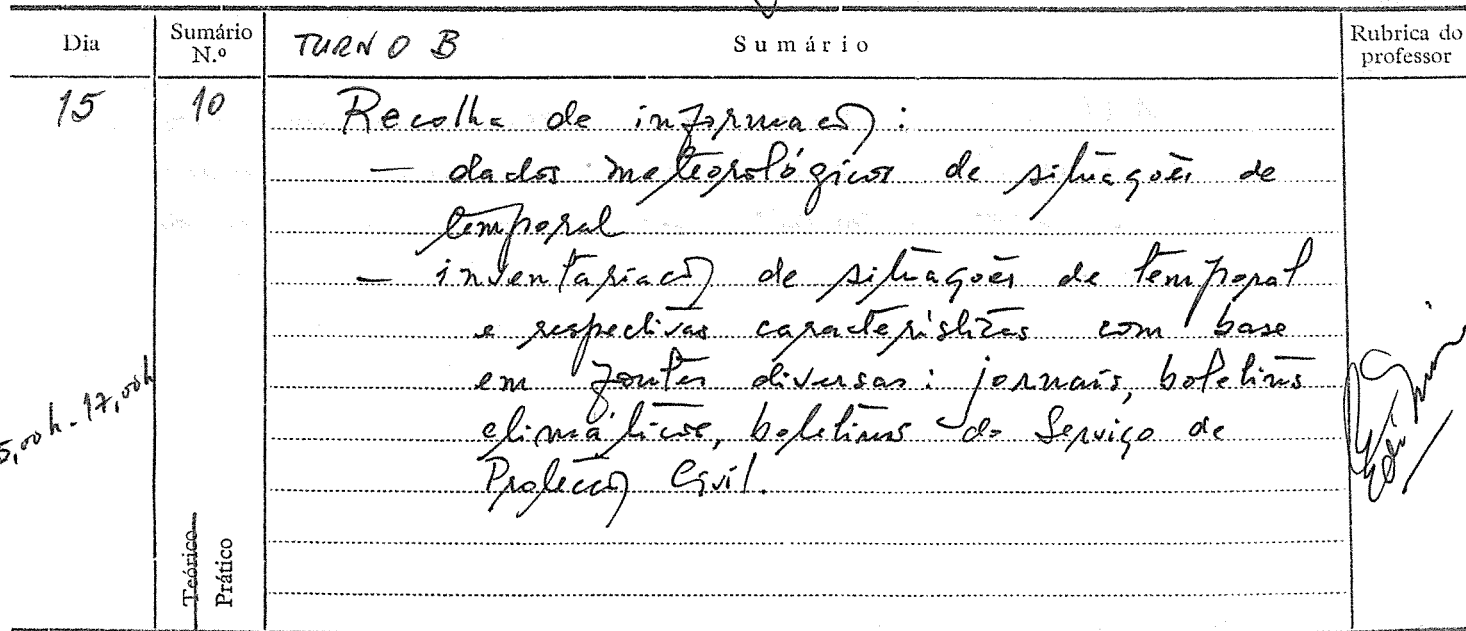 Dia
Sumário N.º
TURNO B
Sumário
Rubrica do professor
15
10
Recolha de informação:
— dados meteorológicos de situações de
temporal
— inventariação de situações de temporal
e respectivas características com base
em fontes diversas: jornais, boletins
climáticos, boletins do Serviço de
Protecção Civil.
5,00h-17,00h
Teórico
Prático